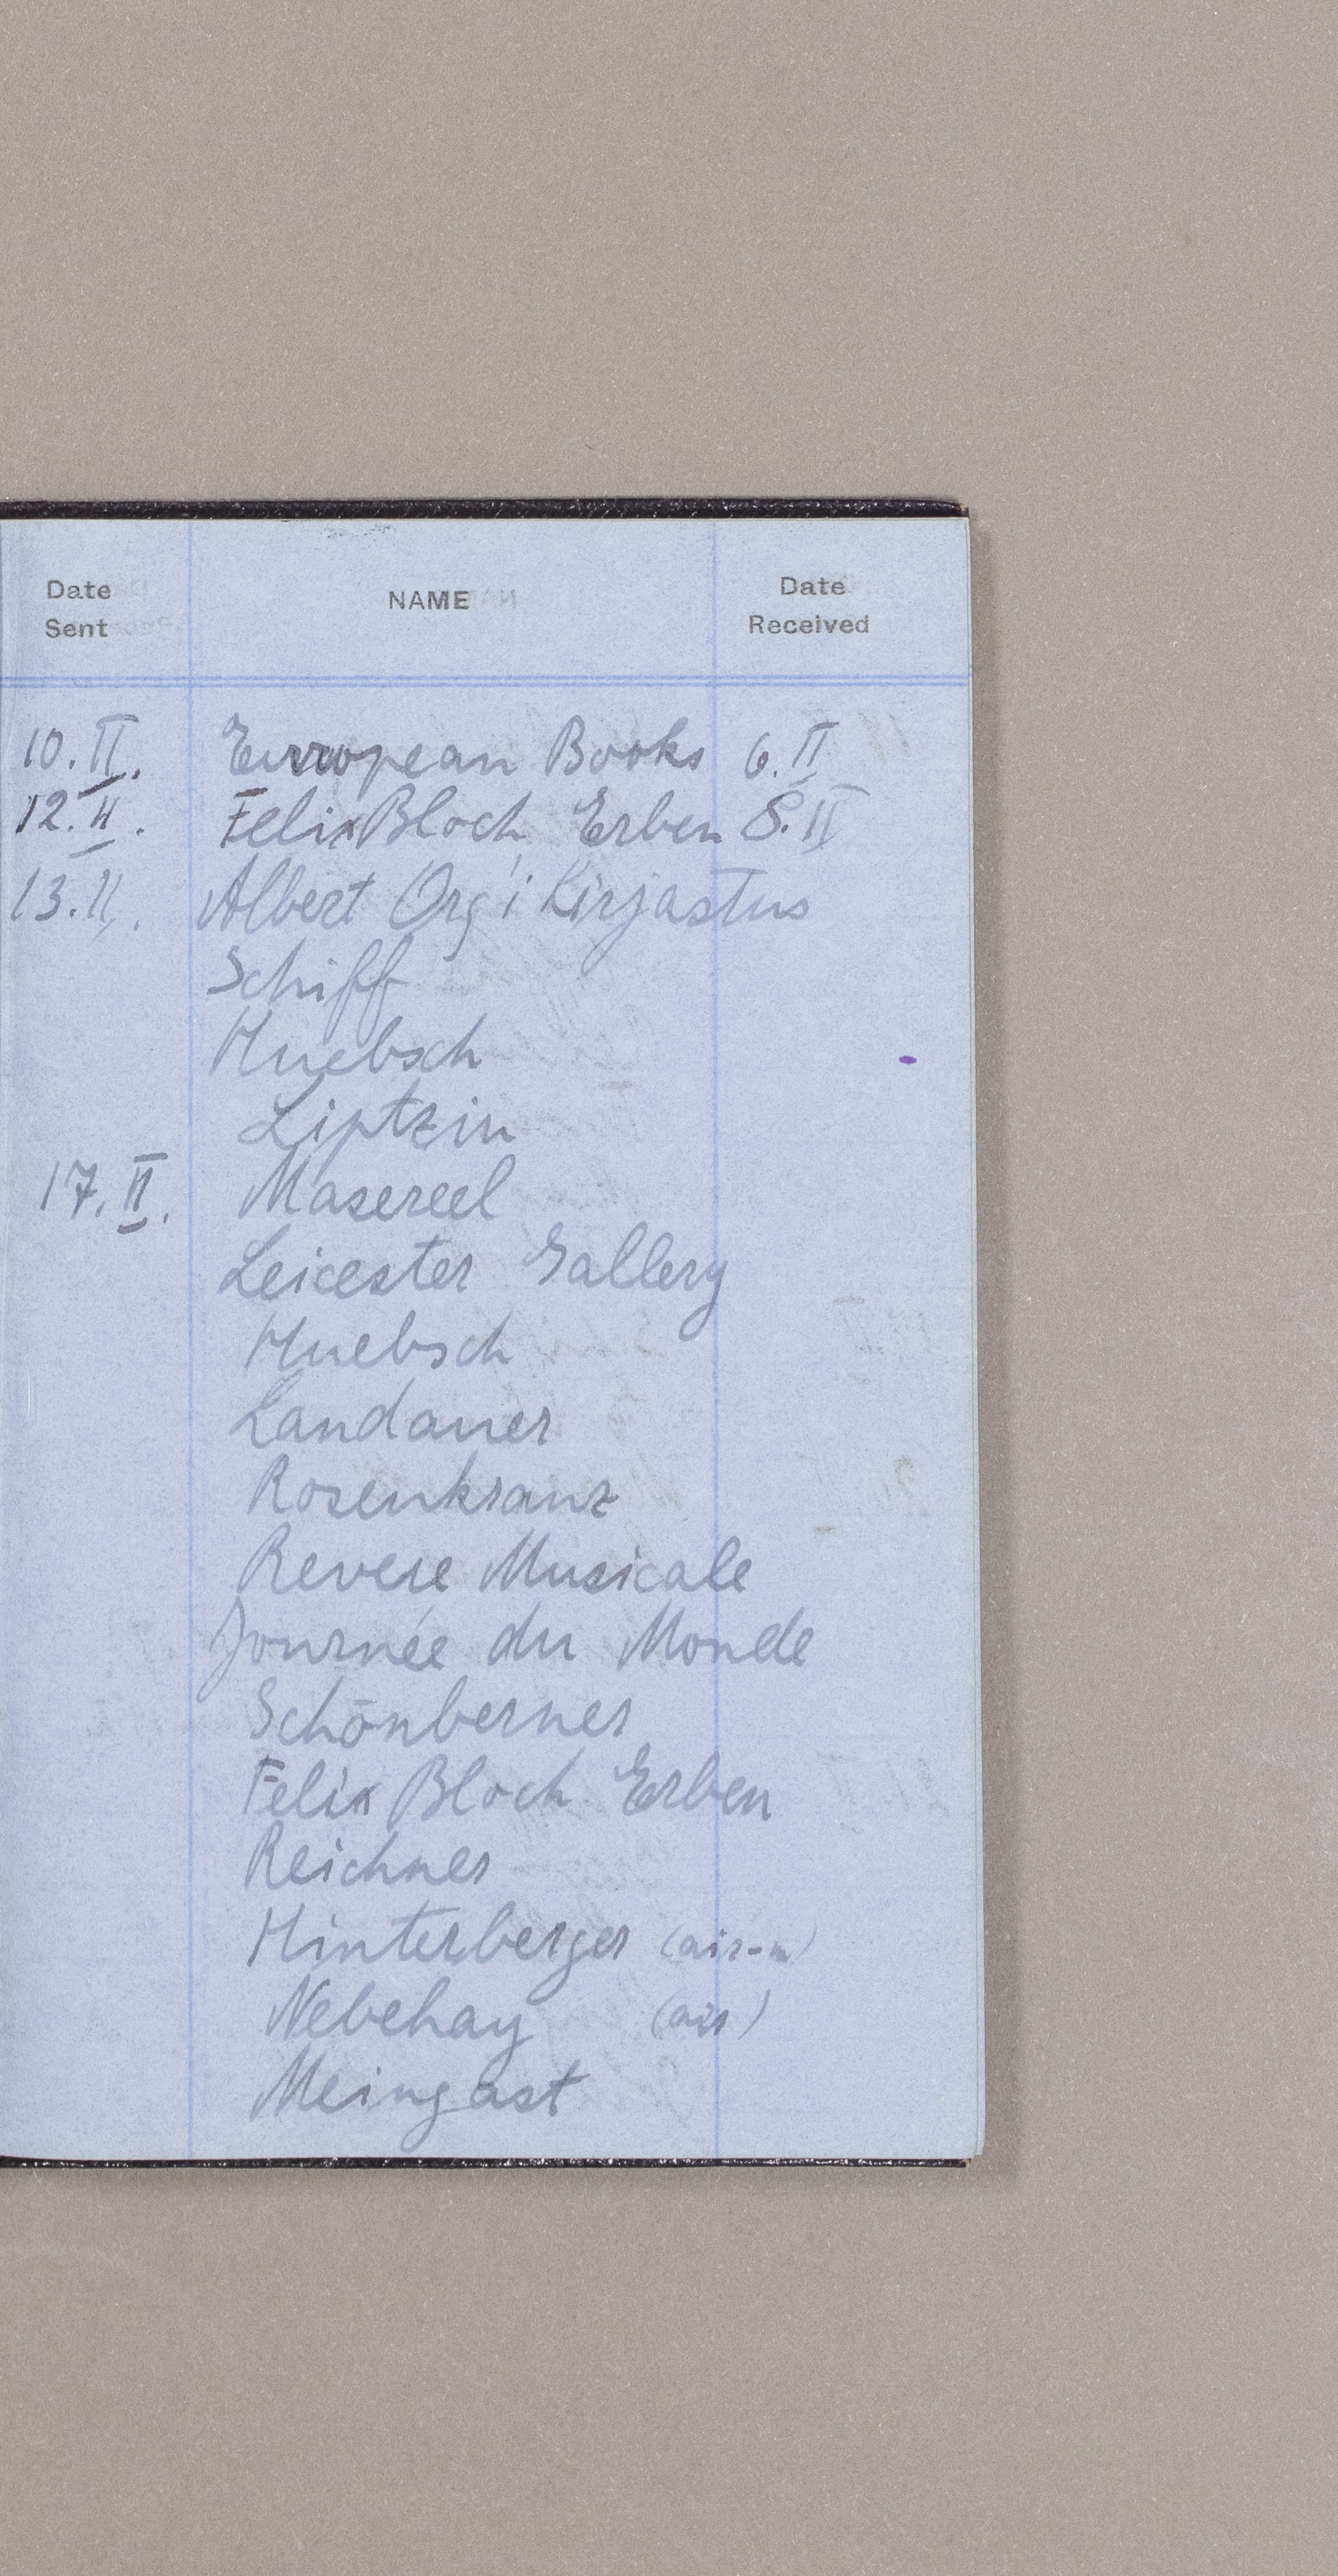 Date Sent NAME Date Received
10.II. European Books 6.II
12.II. Felix Bloch Erben 8.II
13.II. Albert Org'i Kirjastus
Schiff
Huebsch
Liptzin
17.II. Masereel
Leicester Gallery
Huebsch
Landauer
Rosenkranz
Revere Musicale
Journée du Monde
Schönberner
Felix Bloch Erben
Reichner
Hinterberger (air-m)
Nebehay (air)
Meingast